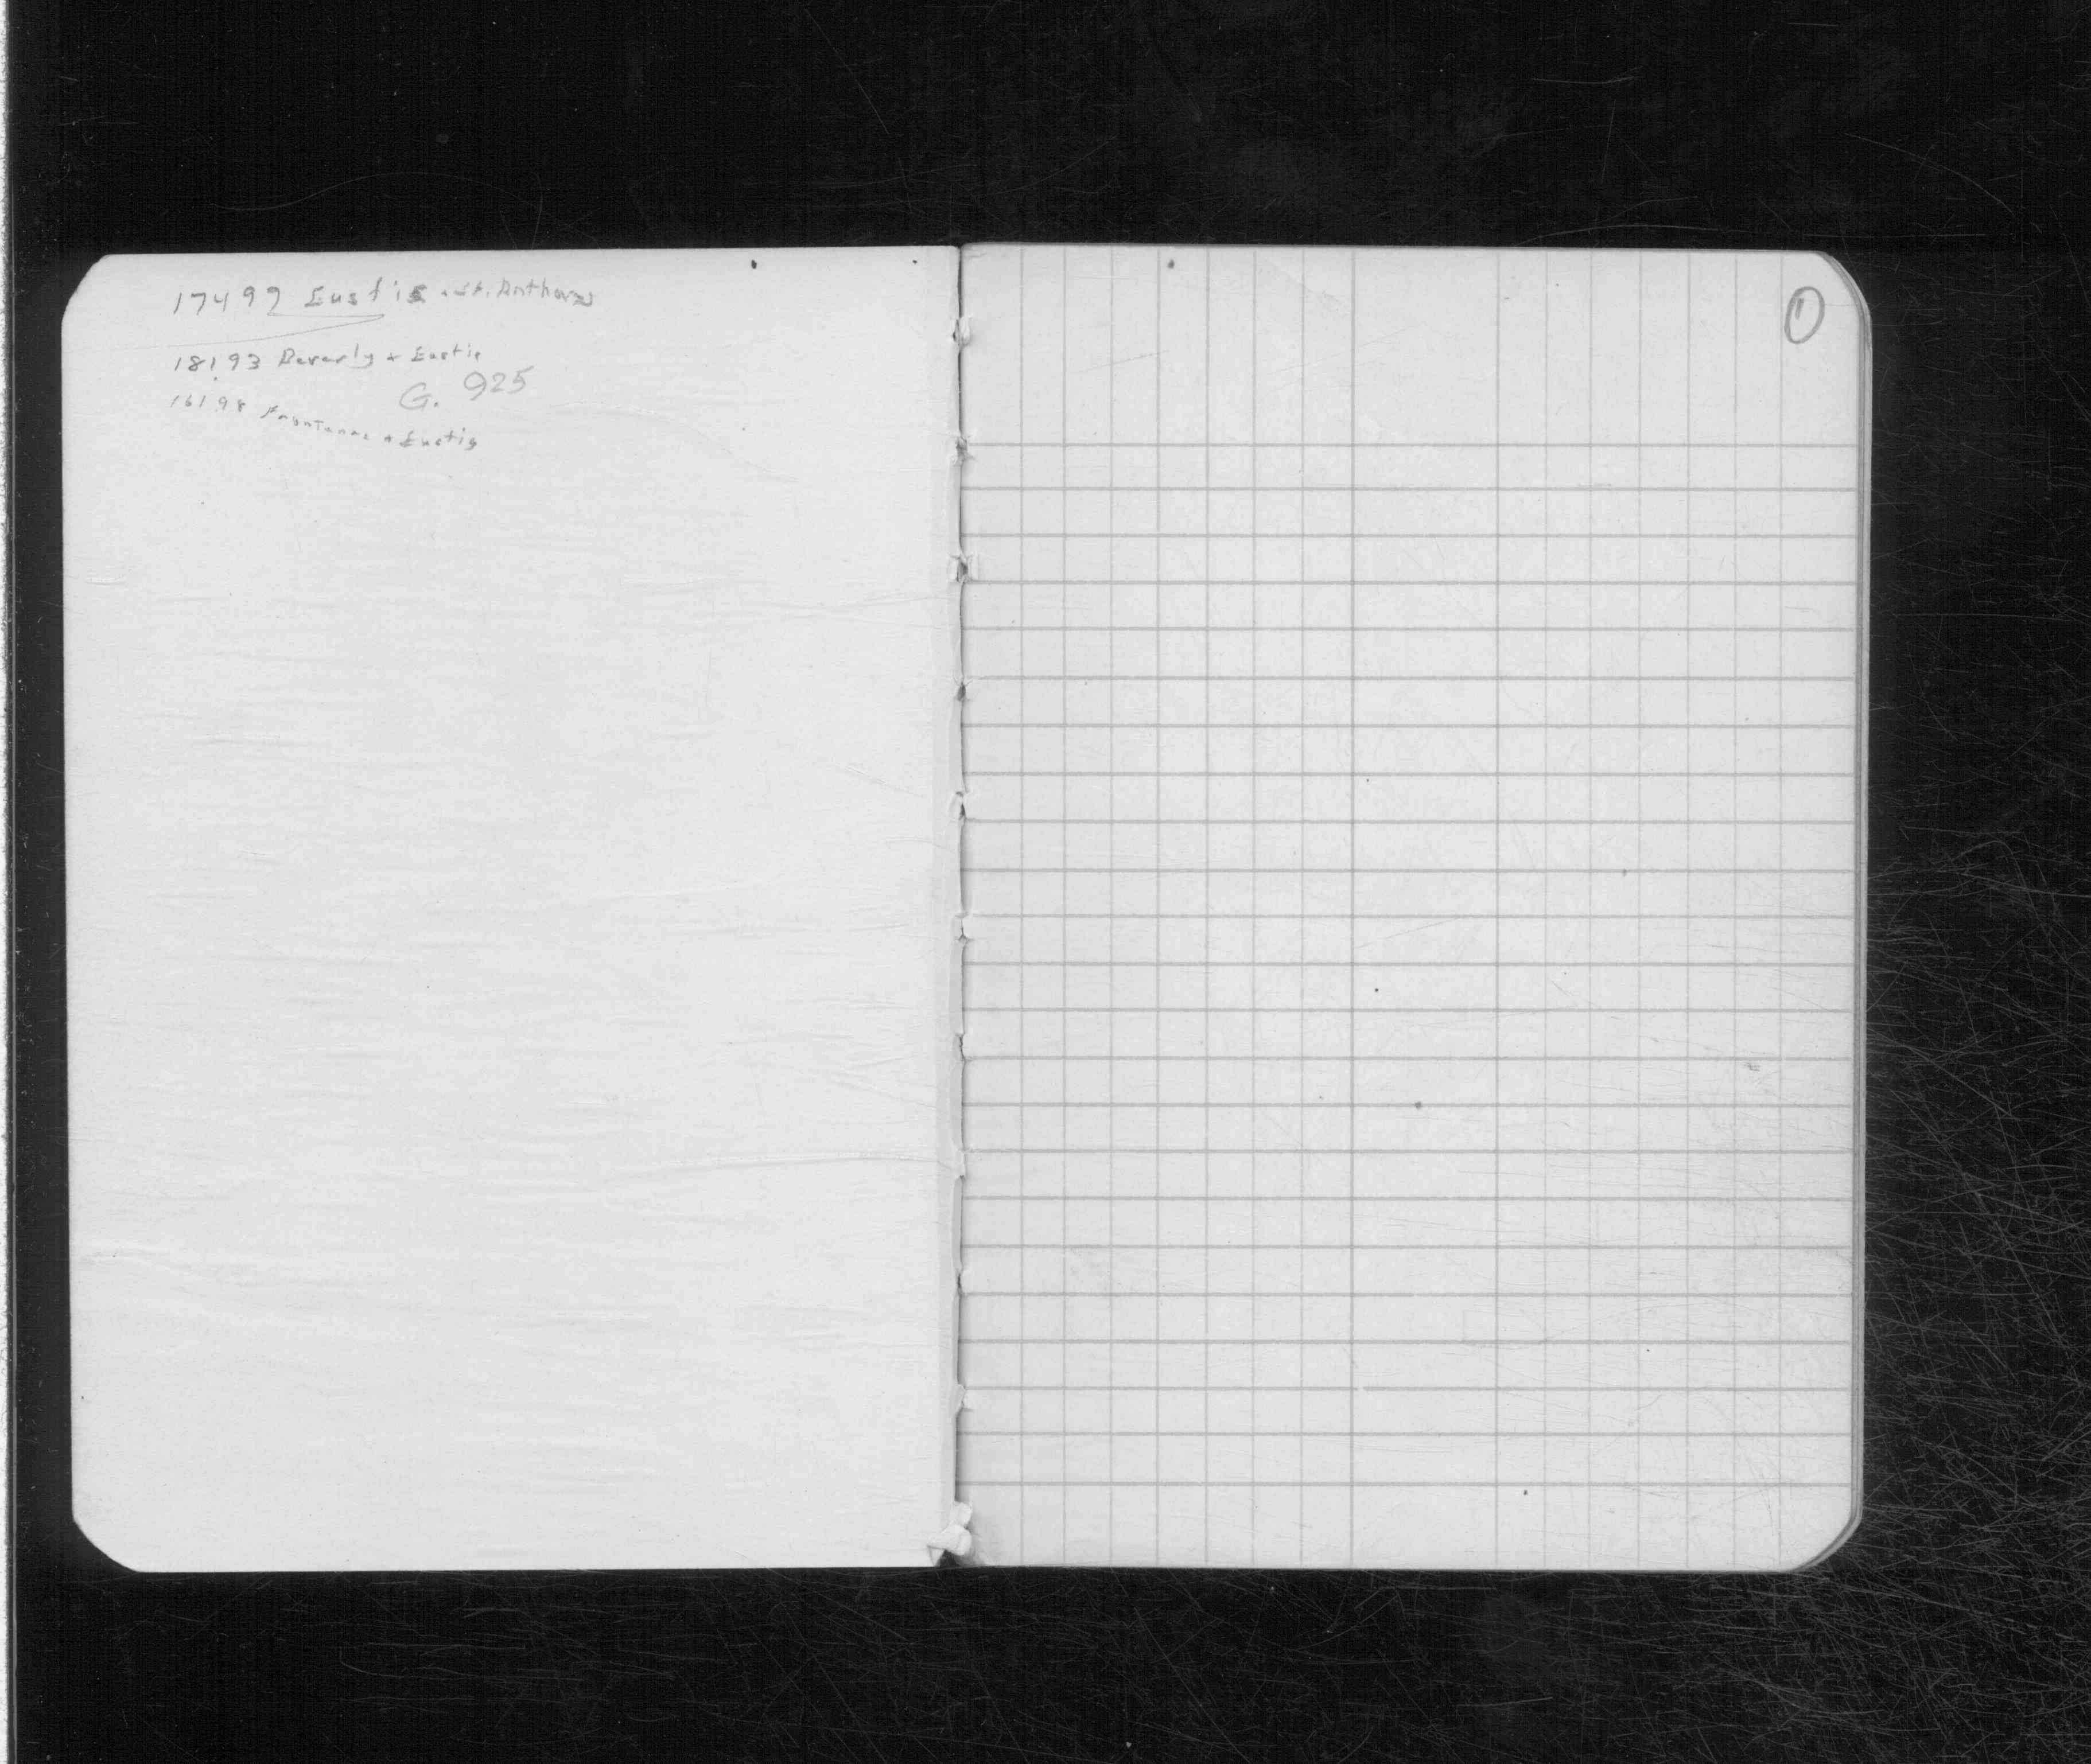 17497 Eustis + St. Anthony
18193 Beverly + Eustis
G. 925
16198 Frontenac + Eustis
1